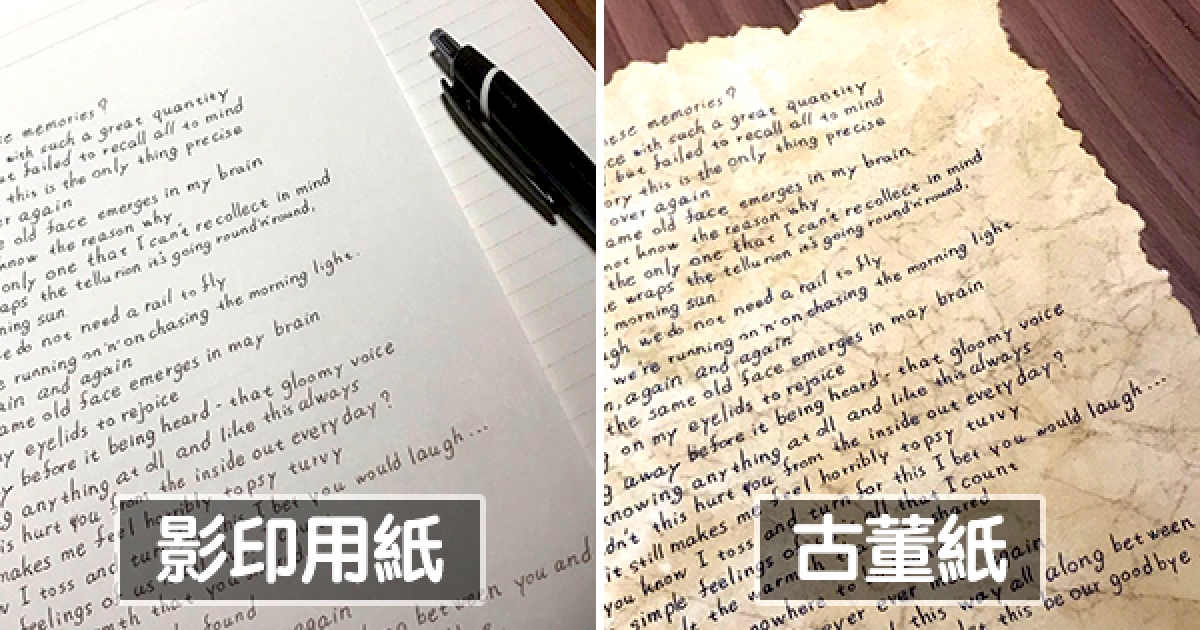 se memories?
with such a great quantity
failed to recall all to mind
this is the only thing precise
er again
old face emerges in my brain
know the reason why
only one that I can't recollect in mind
aps the tellurion it's going round'n'round.
ning sun
e do not need a rail to fly
e running on'n'on chasing the morning light.
ain and again
ame old face emerges in may brain
my eyelids to rejoice
y before it being heard - that gloomy voice
g anything at all and like this always
is hurt you from the inside out everyday?
makes me feel horribly topsy turvy
I toss and this I bet you would laugh...
feelings of us
that you
found
again
between you and
影印用紙
ese memories?
ce with such a great quantity
but failed to recall all to mind
ory this is the only thing precise
over again
ame old face emerges in my brain
not know the reason why
the only one that I can't recollect in mind
e wraps the tellurion it's going round'n'round.
morning sun
gh we do not need a rail to fly
we're running on'n'on chasing the morning light
n, again and again
the same old face emerges in may brain
g on my eyelids to rejoice
g away before it being heard - that gloomy voice
knowing anything at all and like this always
dn't this hurt you from the inside out everyday?
it still makes me feel horribly topsy turvy
you know I toss and turn for this I bet you would laugh...
simple feelings all that I count
the warmth shared
nowhere to
ever ever again
this way all along between
let this be our goodbye
古董紙